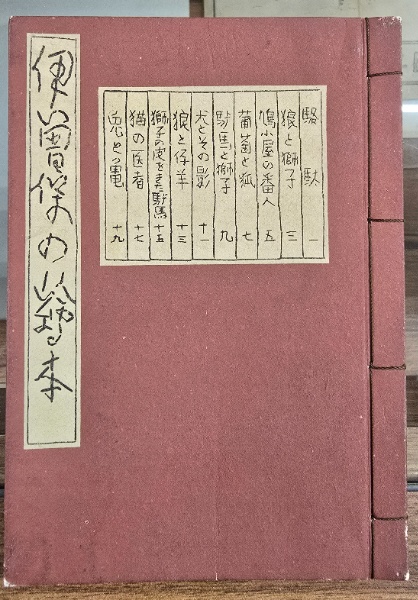 伊曾保の繪本
駱駝 一
狼と獅子 三
鳩小屋の番人 五
葡萄と狐 七
馿馬と獅子 九
犬とその影 十一
狼と仔羊 十三
獅子の皮をきた馿馬 十五
猫の医者 十七
兎と亀 十九